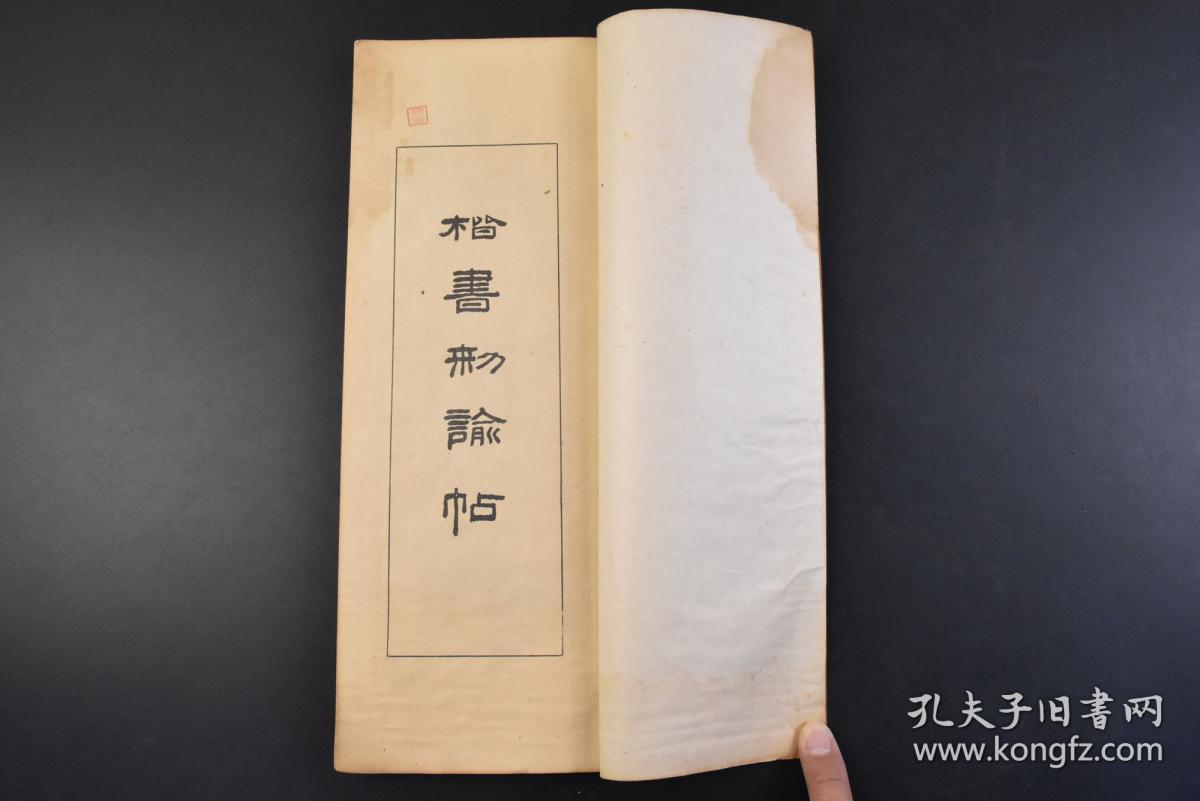 楷書勅諭帖
孔夫子旧書网
www.kongfz.com